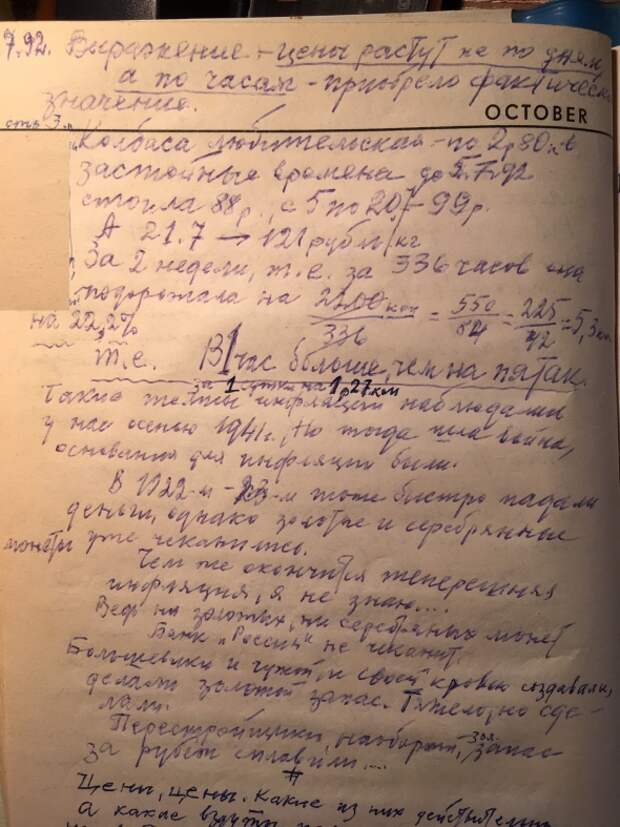 7.92. Выражение – цены растут не по дням,
а по часам – приобрело фактическое
значение.
OCTOBER
Колбаса любительская – по 2р80к в
застойные времена до 5.7.92
стоила 88 р., с 5 по 20.7 – 99 р.
А 21.7 → 121 рубль/кг
За 2 недели, т.е. за 336 часов она
подорожала на 2200 коп/336 = 550/84 = 225/42 = 5,3 коп.
на 22,2%
Т.е. В 1 час больше, чем на пятак.
за 1 сутки на 1р27коп
Такие темпы инфляции наблюдали
у нас осенью 1941 г., Но тогда шла война,
основания для инфляции были.
В 1922-м – 23-м тоже быстро падали
деньги, однако золотые и серебрянные
монеты уже чеканились.
Чем же окончится теперешняя
инфляция, я не знаю...
Ведь ни золотых, ни серебряных монет
Банк „России" не чеканит.
Большевики и чужой и своей кровью создавали,
делали золотой запас. Тяжело, но сде-
лали.
Перестройщики, наоборот, зол. запас
за рубеж сплавили...
#
Цены, цены. Какие из них действительно
а какие взяты